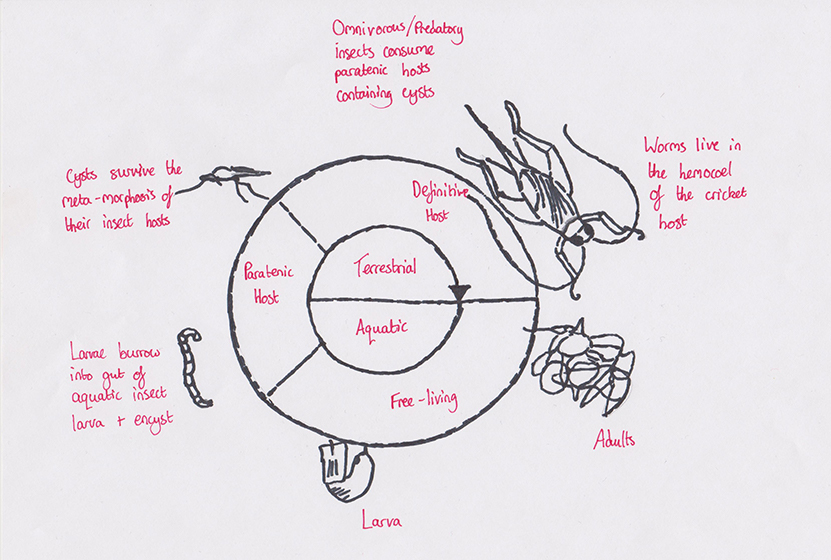 Omnivorous/Predatory
insects consume
paratenic hosts
containing cysts
Worms live in
the hemocoel
of the cricket
host
Cysts survive the
meta-morphosis of
their insect hosts
Definitive
Host
Paratenic
Host
Terrestrial
Aquatic
Free-living
Larvae burrow
into gut of
aquatic insect
larva + encyst
Adults
Larva